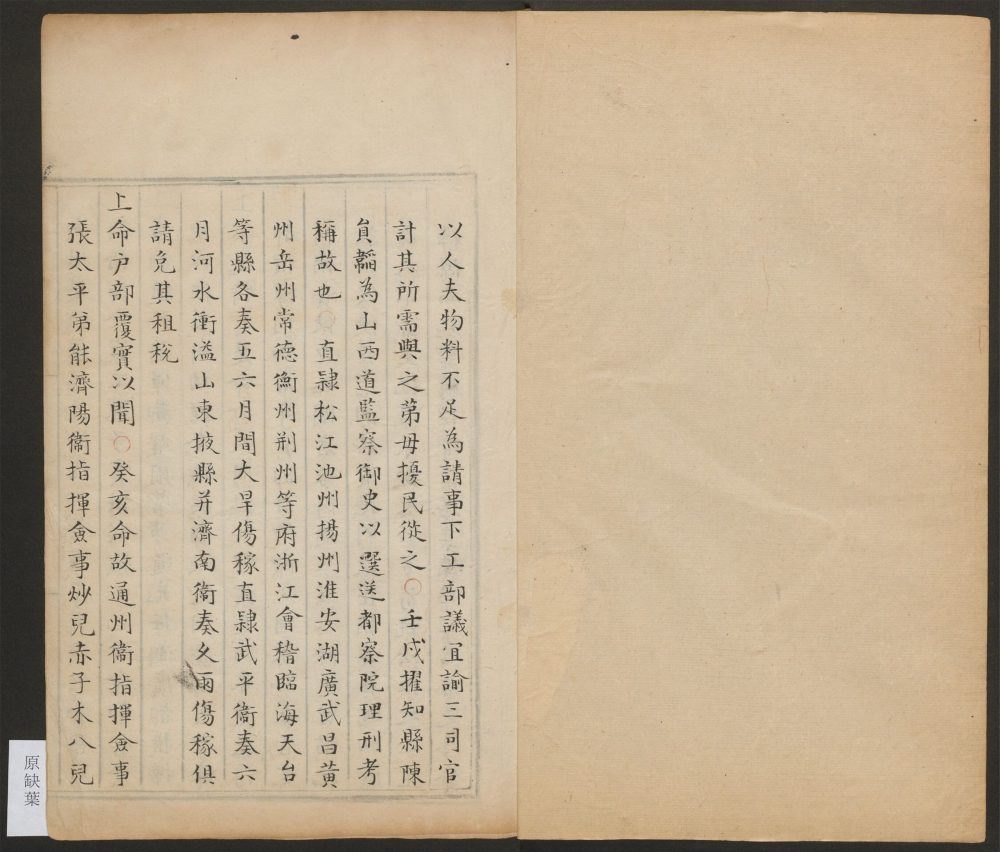 以人夫物料不足為請事下工部議宜諭三司官
計其所需與之第毋擾民從之○壬戌擢知縣陳
員韜為山西道監察御史以選送都察院理刑考
稱故也○直隸松江池州揚州淮安湖廣武昌黃
州岳州常德衡州荆州等府浙江會稽臨海天台
等縣各奏五六月間大旱傷稼直隸武平衛奏六
月河水衝溢山東掖縣并濟南衛奏久雨傷稼俱
請免其租稅
上命户部覆實以聞○癸亥命故通州衛指揮僉事
張太平弟能濟陽衛指揮僉事炒兒赤子木八兒
原缺葉